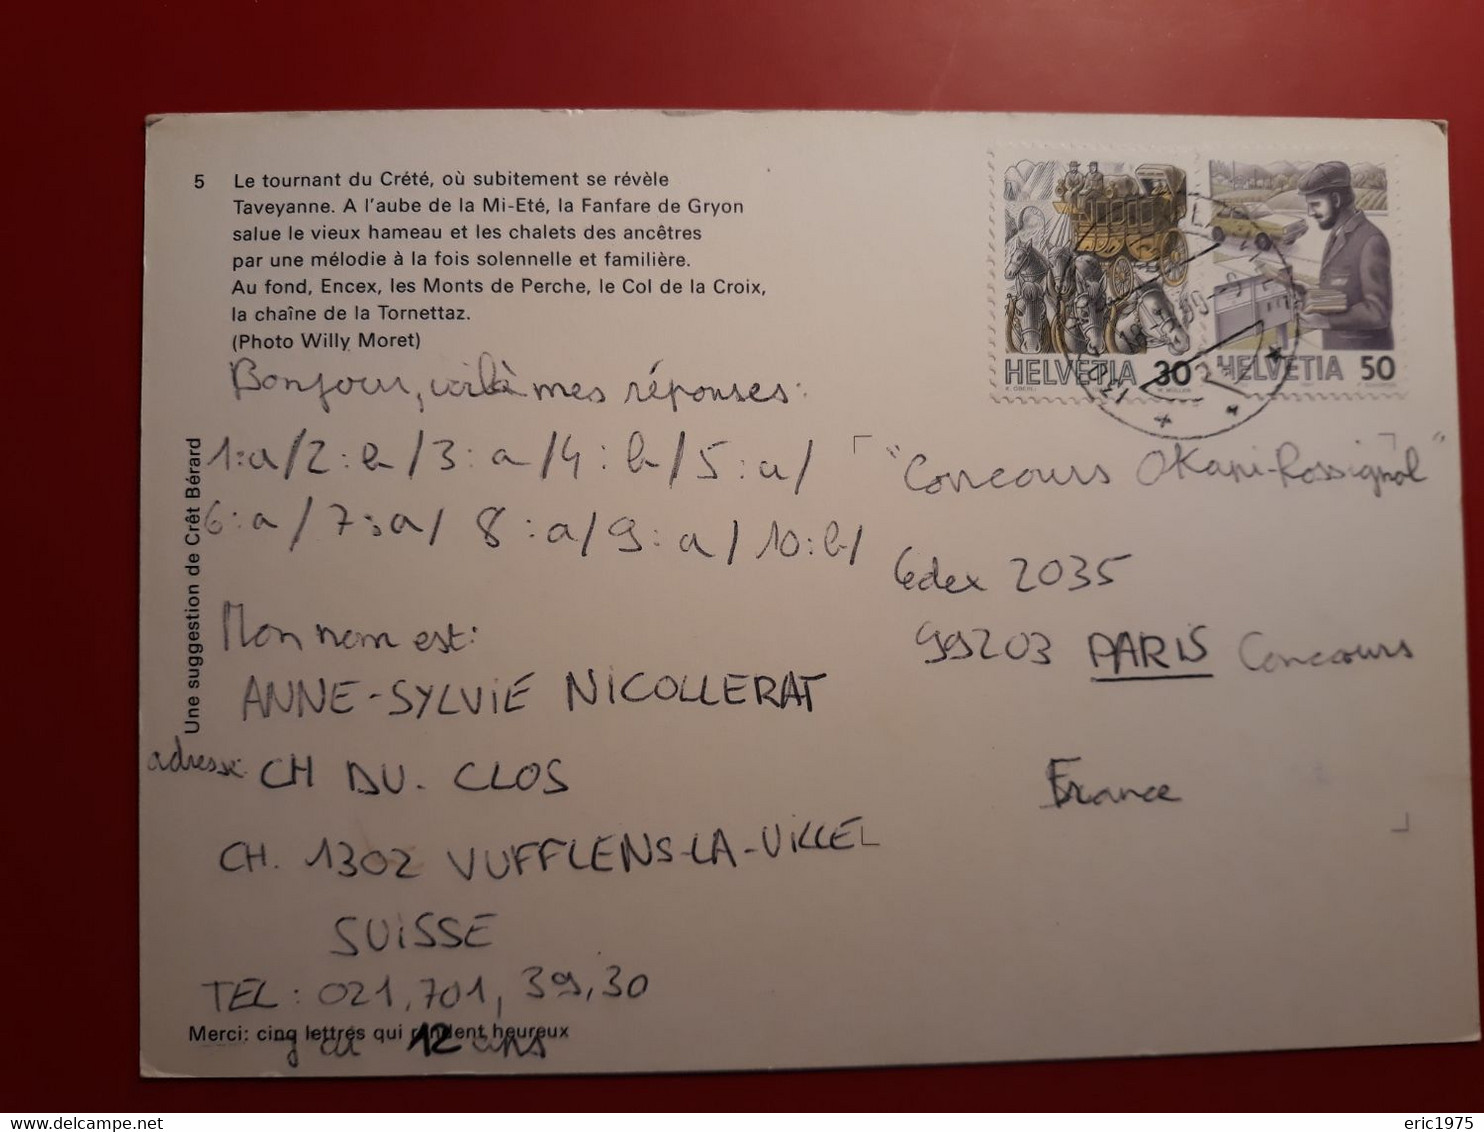 5 Le tournant du Crété, où subitement se révèle
Taveyanne. A l'aube de la Mi-Eté, la Fanfare de Gryon
salue le vieux hameau et les chalets des ancêtres
par une mélodie à la fois solennelle et familière.
Au fond, Encex, les Monts de Perche, le Col de la Croix,
la chaîne de la Tornettaz.
(Photo Willy Moret)
HELVETIA 30
HELVETIA 50
Bonjour, voilà mes réponses:
1:a/2:b/3:a/4:b/5:a/
6:a/7:a/8:a/9:a/10:b/
Une suggestion de Crêt Bérard
Mon nom est:
ANNE-SYLVIE NICOLLERAT
adresse: CH DU. CLOS
CH. 1302 VUFFLENS-LA-VILLE
SUISSE
TEL: 021.701,39,30
Merci: cinq lettres qui rendent heureux
j'ai 12 ans
"Concours Okapi-Rossignol"
Cedex 2035
99203 PARIS Concours
France
eric1975